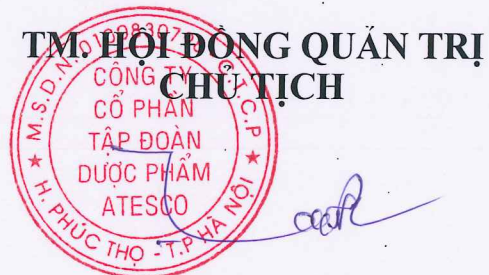 TM. HỘI ĐỒNG QUẢN TRỊ
CHỦ TỊCH
CÔNG TY
CỔ PHẦN
TẬP ĐOÀN
DƯỢC PHẨM
ATESCO
H. PHÚC THỌ - T.P HÀ NỘI